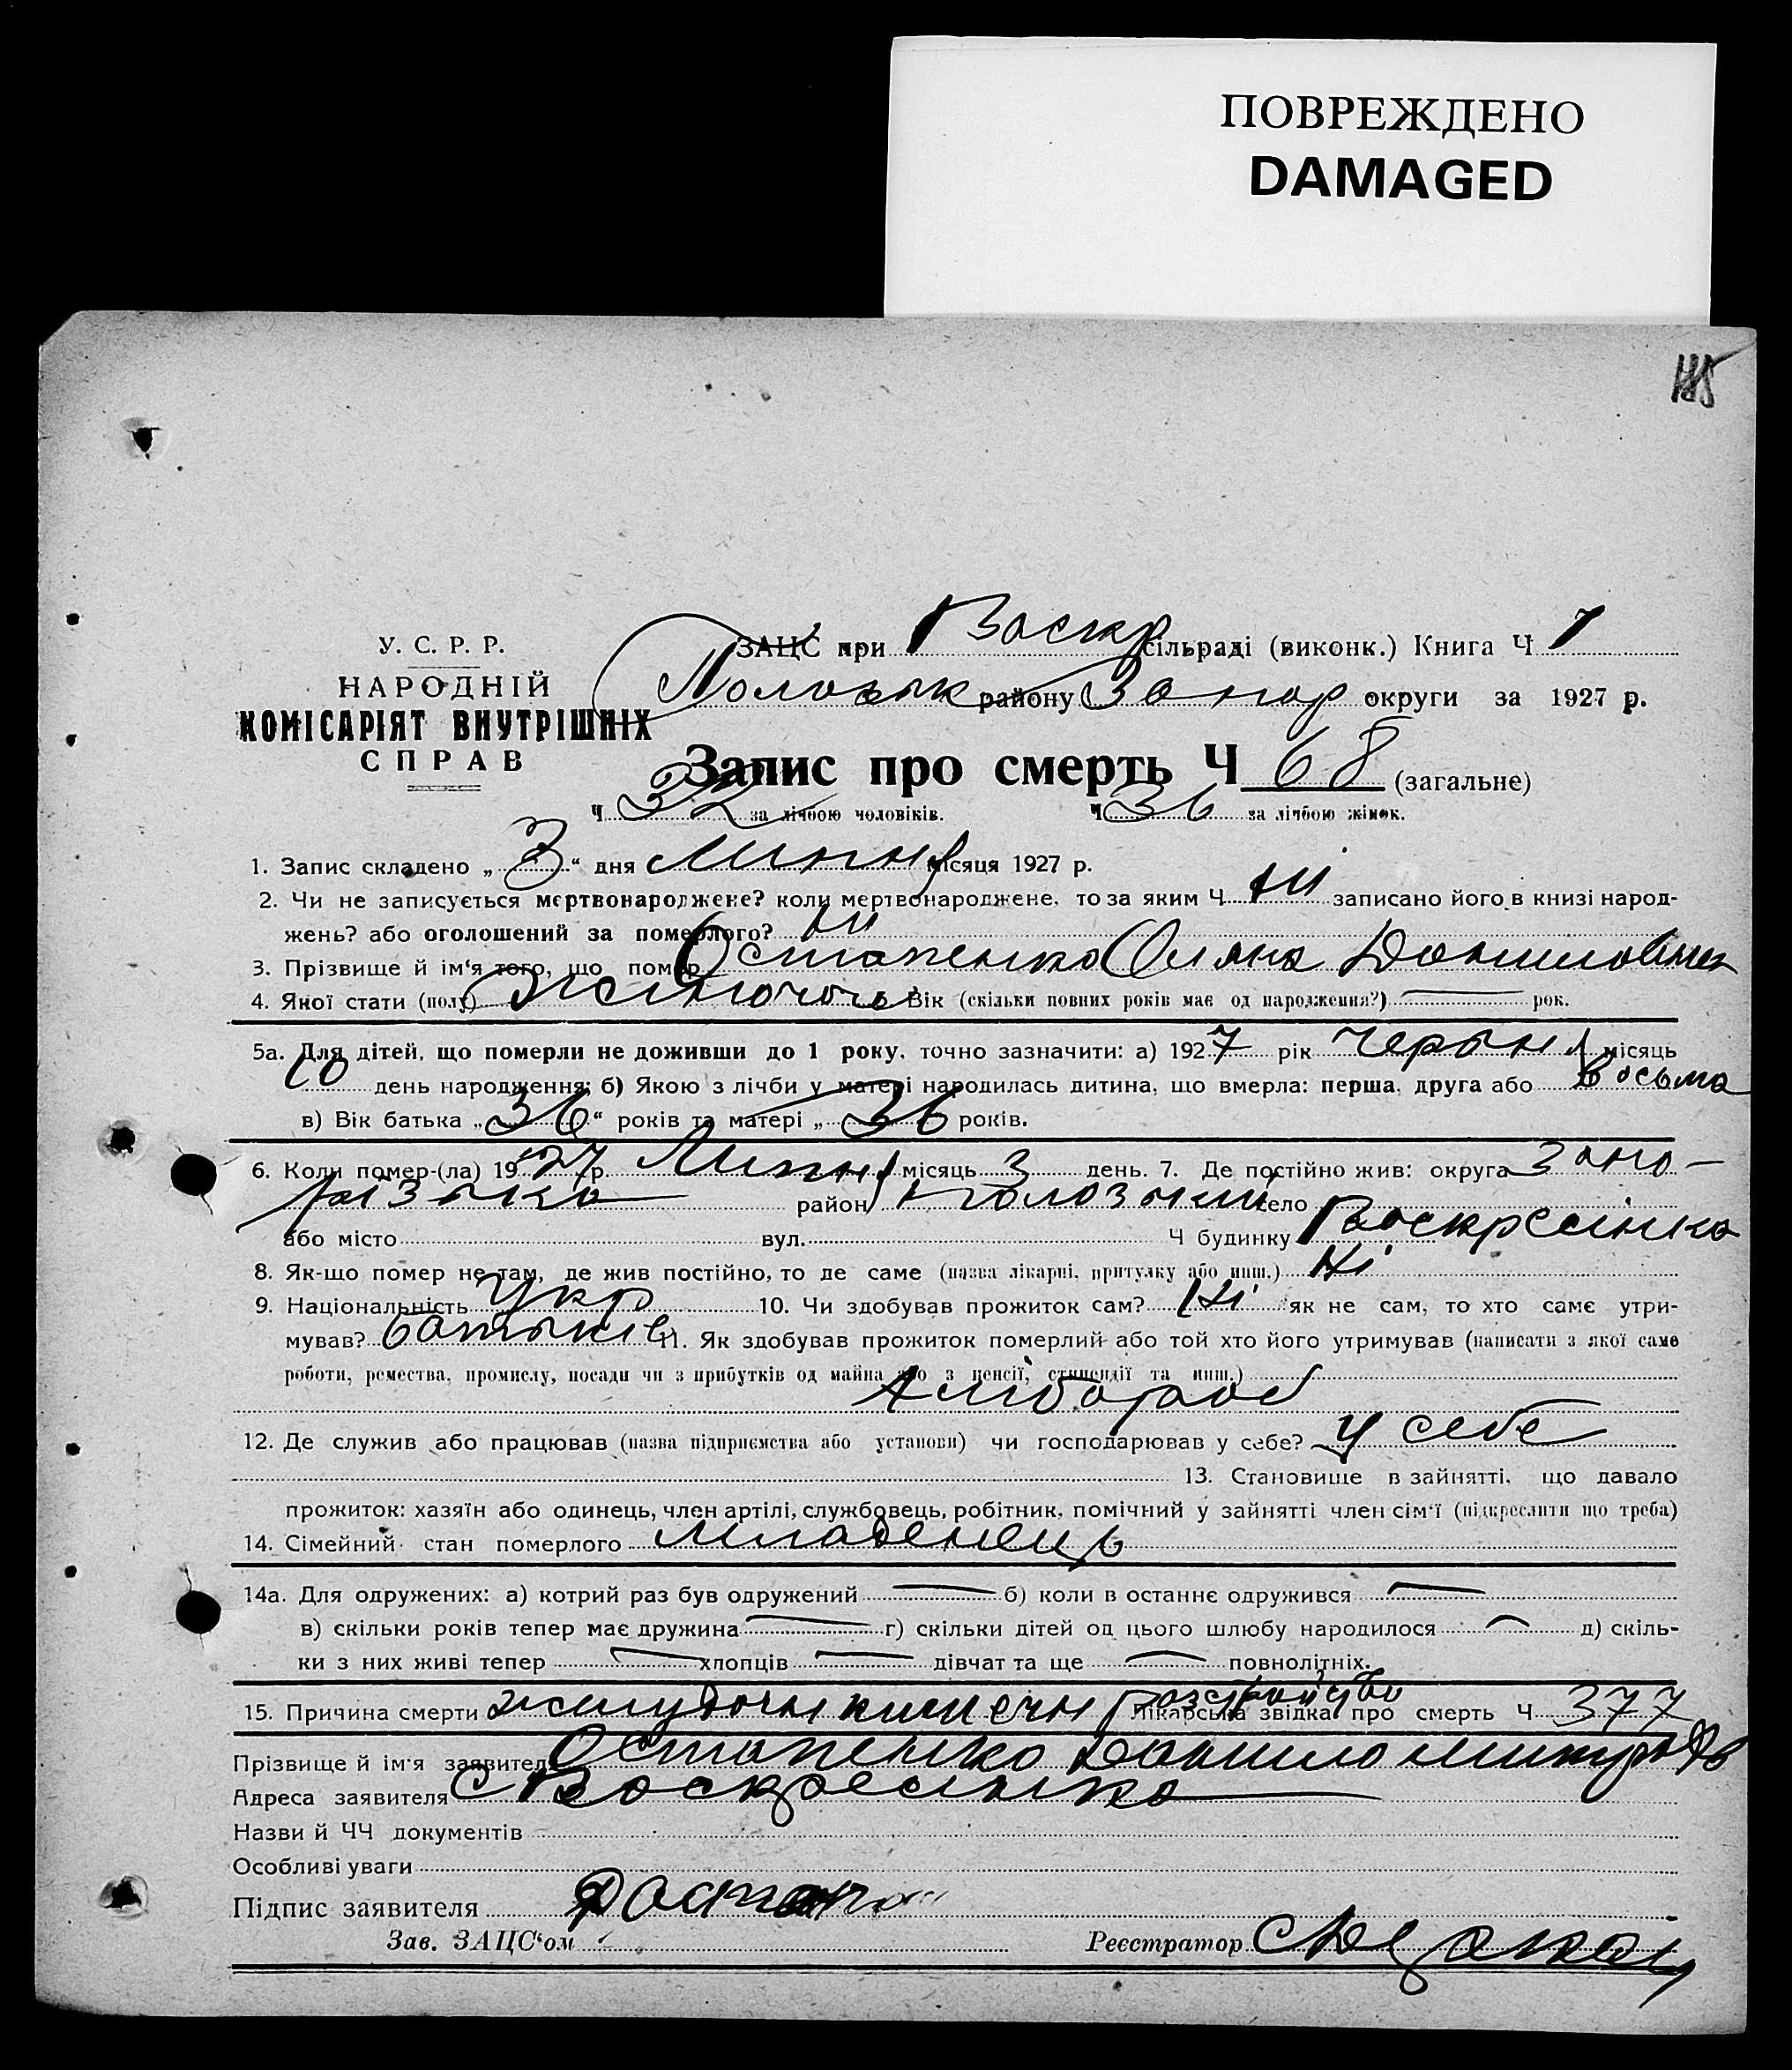 ПОВРЕЖДЕНО
DAMAGED
У. С. Р. Р.
НАРОДНІЙ
КОМІСАРІЯТ ВНУТРІШНІХ
СПРАВ
ЗАЦС при Воскр сільраді (виконк.) Книга Ч 1
Пологськ району Запор округи за 1927 р.
Запис про смерть Ч 68 (загальне)
Ч 32 за лічбою чоловіків. Ч 36 за лічбою жінок.
1. Запис складено „ 3 “ дня Липня місяця 1927 р.
2. Чи не записується мертвонароджене? коли мертвонароджене, то за яким Ч ні записано його в книзі народ-
жень? або оголошений за померлого? ні
3. Прізвище й ім‘я того, що помер Остапенко Оляна Даниловна
4. Якої стати (полу) Вік (скільки повних років має од народження?) — рок.
5а. Для дітей, що померли не доживши до 1 року, точно зазначити: а) 1927 рік Червня місяць
10 день народження; б) Якою з лічби у матері народилась дитина, що вмерла: перша, друга або восьма
в) Вік батька „ 36 “ років та матері „ 36 років.
6. Коли помер-(ла) 1927 р. Липня місяць 3 день. 7. Де постійно жив: округа Запо-
різька район Пологзький село
або місто вул. Ч будинку Воскресінка
8. Як-що помер не там, де жив постійно, то де саме (назва лікарні, притулку або инш.) Ні
9. Національність Укр 10. Чи здобував прожиток сам? Ні як не сам, то хто саме утри-
мував? батьків 11. Як здобував прожиток померлий або той хто його утримував (написати з якої саме
роботи, ремества, промислу, посади чи з прибутків од майна або з пенсії, стипендії та инш.)
Хлібороб
12. Де служив або працював (назва підприємства або установи) чи господарював у себе? У себе
13. Становище в зайнятті, що давало
прожиток: хазяїн або одинець, член артілі, службовець, робітник, помічний у зайнятті член сім‘ї (підкреслити що треба)
14. Сімейний стан померлого младенець
14а. Для одружених: а) котрий раз був одружений — б) коли в останнє одружився —
в) скільки років тепер має дружина — г) скільки дітей од цього шлюбу народилося — д) скіль-
ки з них живі тепер — хлопців — дівчат та ще — повнолітніх.
15. Причина смерти желудочн кишечн розстройство Лікарська звідка про смерть Ч 377
Прізвище й ім‘я заявителя Остапенко Данило
Адреса заявителя с Воскресінка
Назви й ЧЧ документів
Особливі уваги
Підпис заявителя
Зав. ЗАЦС‘ом Реєстратор